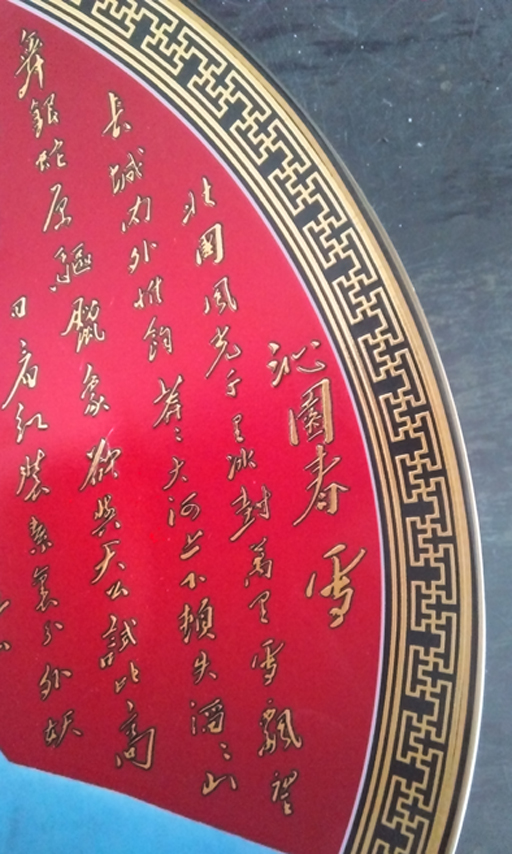 沁園春 雪
北國風光千里冰封萬里雪飄望
長城内外惟餘莽〻大河上下頓失滔〻山
舞銀蛇原驅臘象欲與天公試比高
日看紅裝素裹分外妖